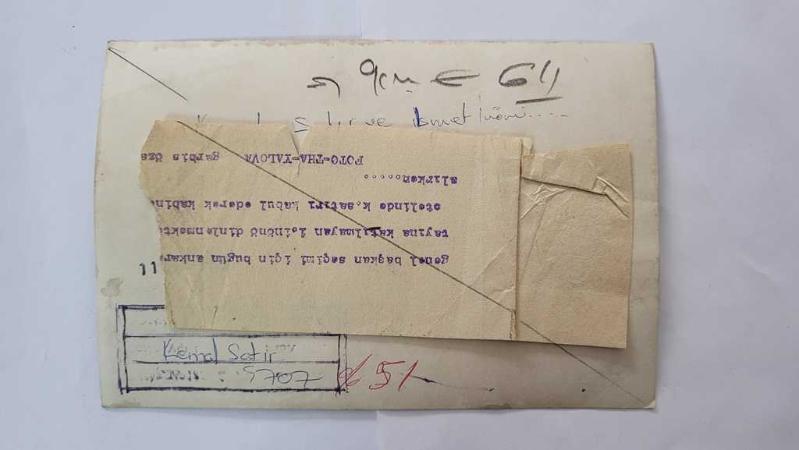 9cm € 64
İsmet İnönü....
genel başkan seçimi için bugün ankara
tayına katılmayan i.inönü dinlenmekte
otelinde k.satırı kabul ederek kabine
alırken......
FOTO-THA-YALOVA garbis öza
11
Kemal Satır
5707
%51